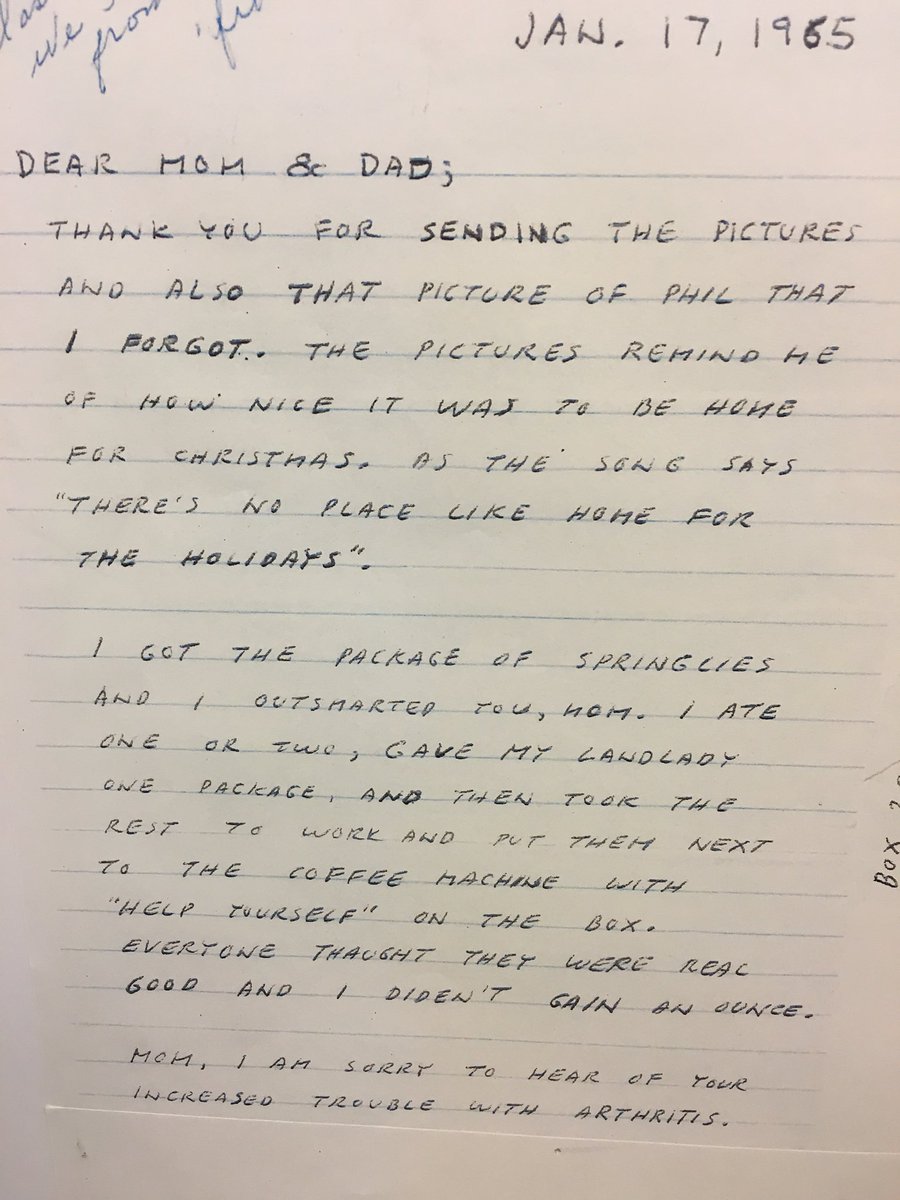 We
from
JAN. 17, 1965
DEAR MOM & DAD;
THANK YOU FOR SENDING THE PICTURES
AND ALSO THAT PICTURE OF PHIL THAT
I FORGOT. THE PICTURES REMIND ME
OF HOW NICE IT WAS TO BE HOME
FOR CHRISTMAS. AS THE SONG SAYS
"THERE'S NO PLACE LIKE HOME FOR
THE HOLIDAYS".
I GOT THE PACKAGE OF SPRINGLIES
AND I OUTSMARTED YOU, MOM. I ATE
ONE OR TWO, GAVE MY LANDLADY
ONE PACKAGE, AND THEN TOOK THE
REST TO WORK AND PUT THEM NEXT
TO THE COFFEE MACHINE WITH
"HELP YOURSELF" ON THE BOX.
EVERYONE THAUGHT THEY WERE REAL
GOOD AND I DIDEN'T GAIN AN OUNCE.
MOM, I AM SORRY TO HEAR OF YOUR
INCREASED TROUBLE WITH ARTHRITIS.
BOX